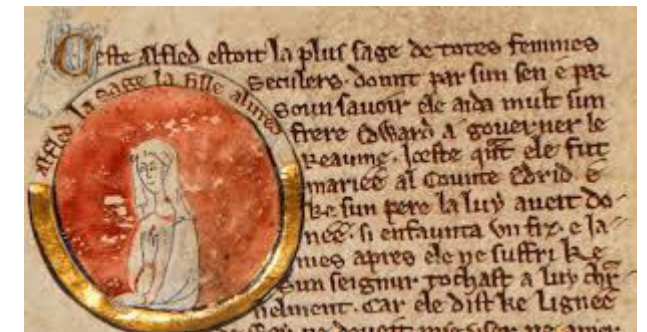 Ceste Alfled estoit la plus sage de totes femmes
alfled la sage la fille alured
seculers. dount par sun sen e par
soun sauoir ele aida mult sun
frere Edward a gouerner le
Reaume. Iceste qnt ele fut
mariee al Counte Edrid e
ke sun pere la luy aueit do
nee. si enfaunta vn fiz. e la
mes apres ele ne suffri ke
sun seignur tochast a luy chr
nelment. Car ele dist ke lignee